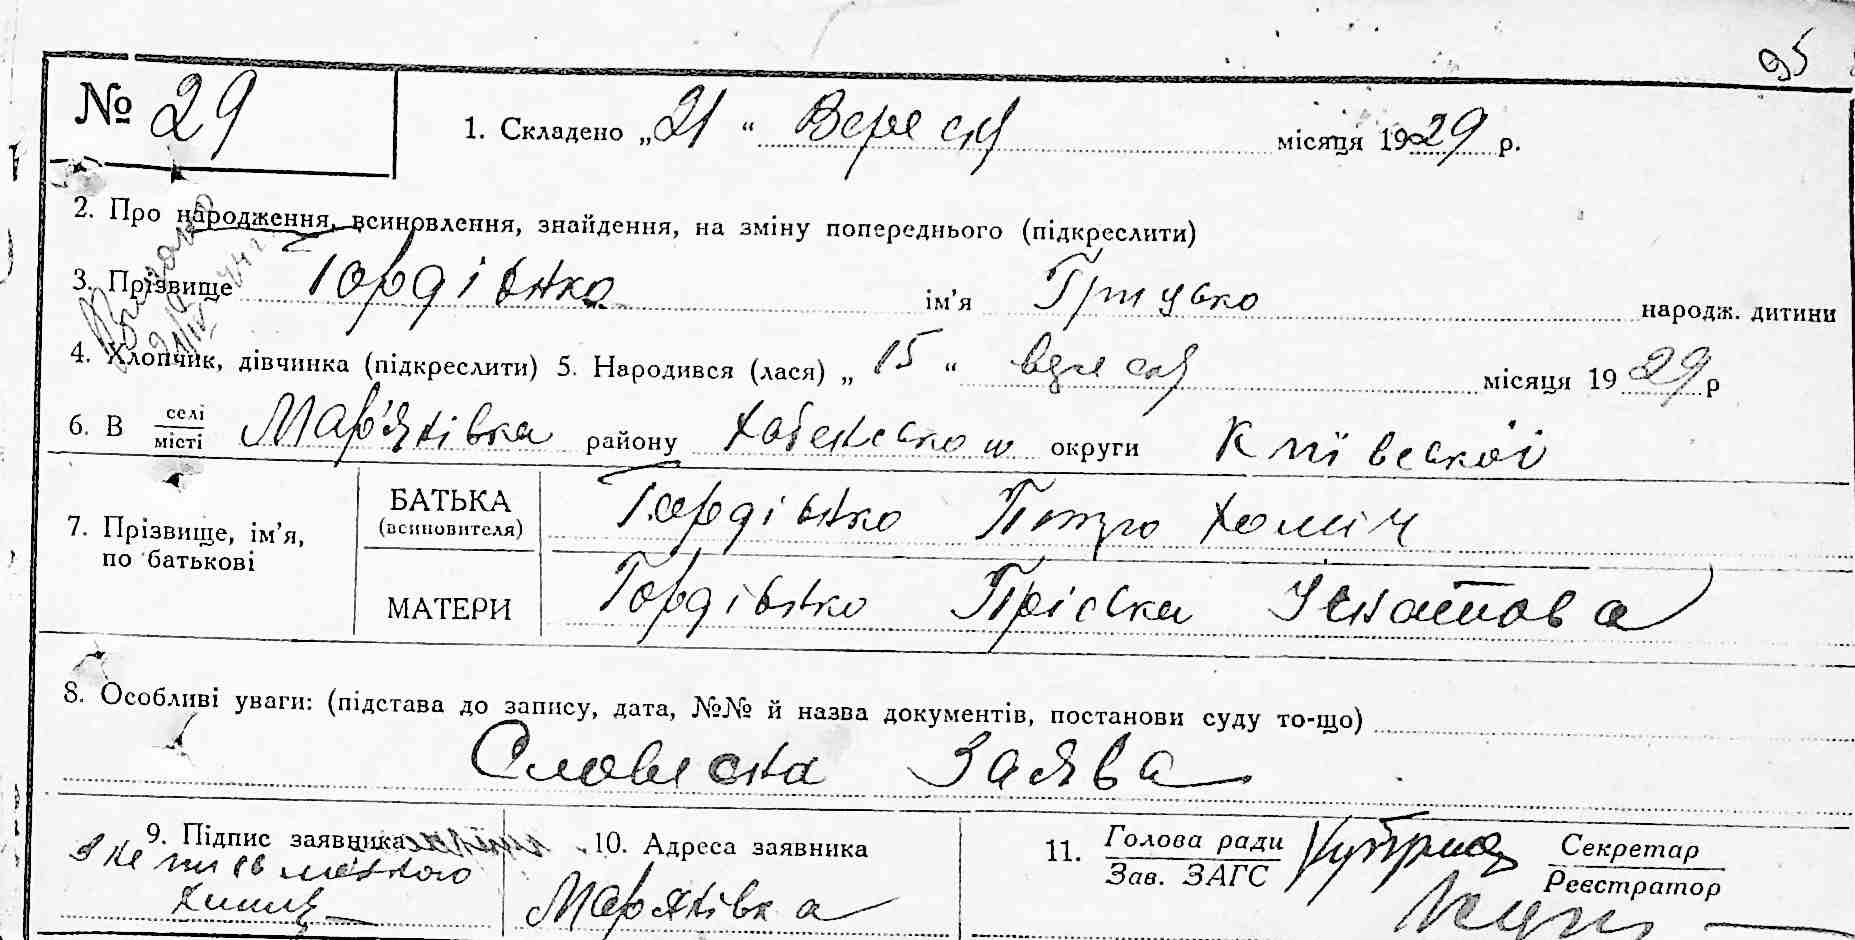 95
№ 29
1. Складено „21“ Вересня місяця 1929 р.
2. Про народження, всиновлення, знайдення, на зміну попереднього (підкреслити)
3. Прізвище Гордієнко ім’я Грицько народж. дитини
4. Хлопчик, дівчинка (підкреслити) 5. Народився (лася) „15“ вересня місяця 1929 р
6. В селі/місті Мар’янівка району округи Київської
7. Прізвище, ім’я, по батькові
БАТЬКА (всиновителя) Гордієнко Петро Хоміч
МАТЕРИ Гордієнко Пріська
8. Особливі уваги: (підстава до запису, дата, №№ й назва документів, постанови суду то-що)
Словесна Заява
9. Підпис заявника
10. Адреса заявника
Марянівка
11. Голова ради/Зав. ЗАГС
Секретар/Реєстратор